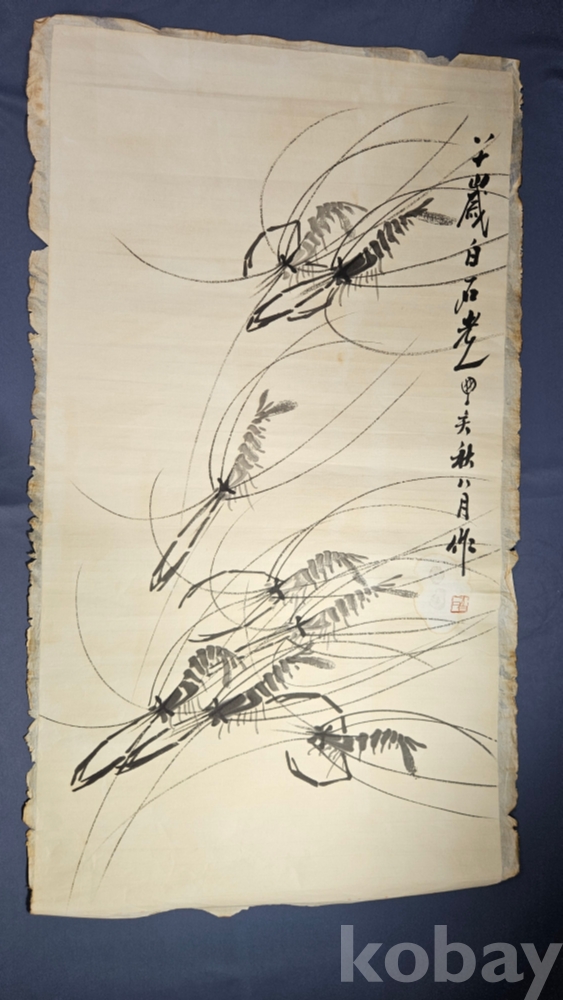 八十歲白石老人甲亥秋八月作
kobay